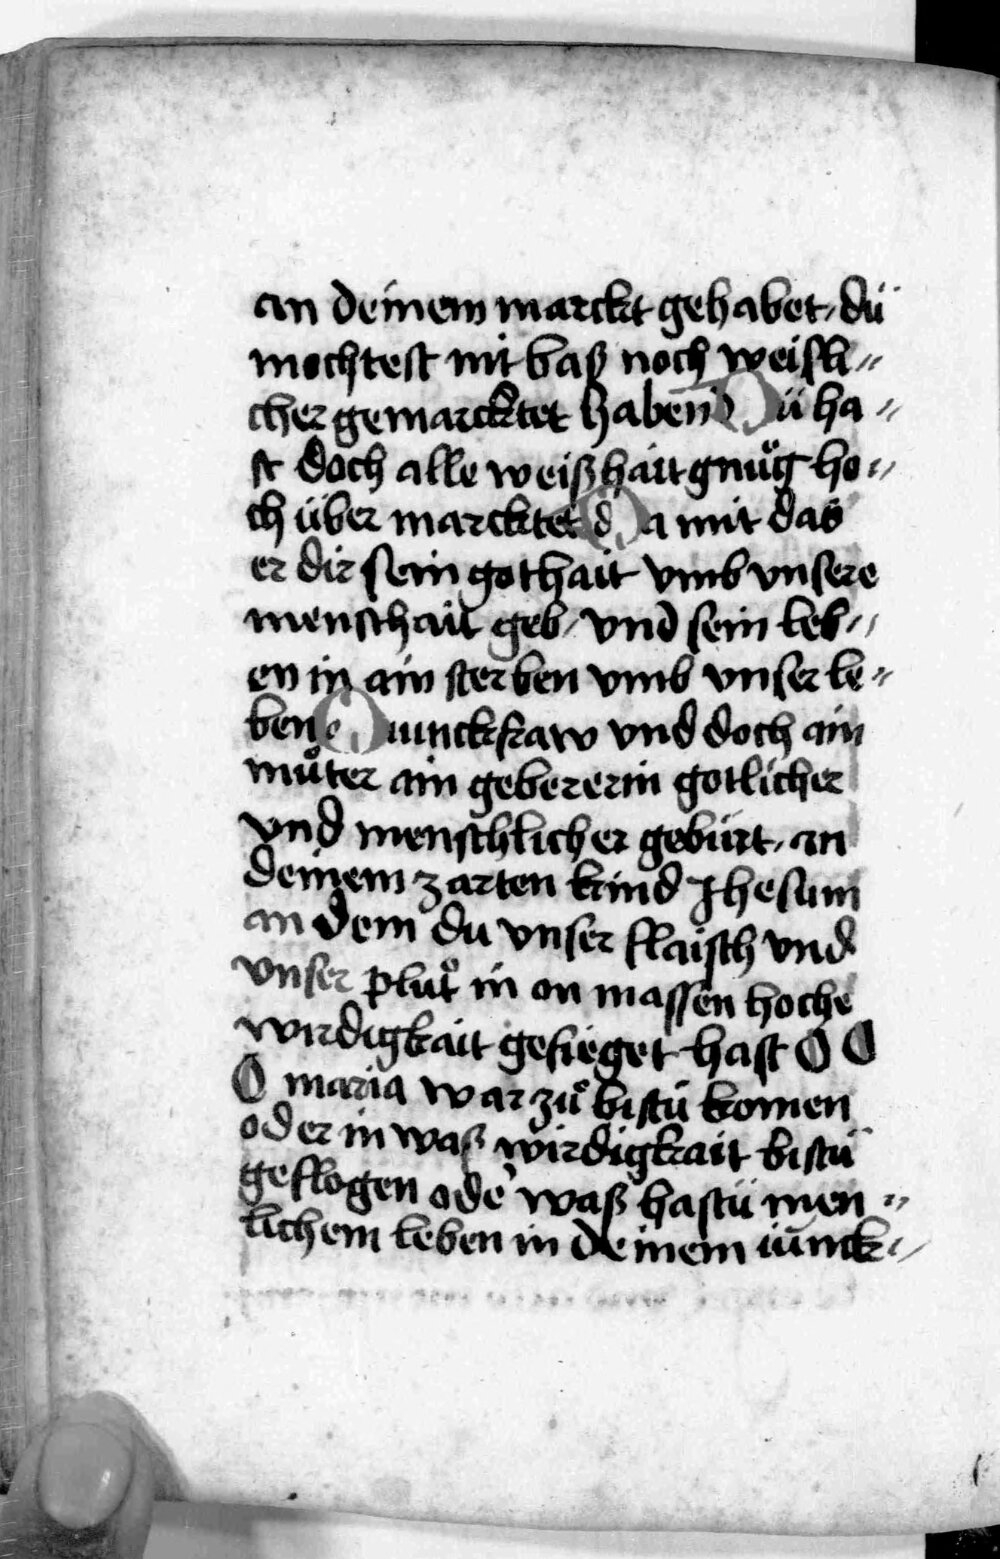 an deinem marckt gehabet / dü
mochtest nit baß noch weißli〃
cher gemarcktet haben Dü ha〃
st doch alle weißhait gnuͤg ho〃
ch über marcktet Da mit das
er dir sein gothait vmb vnsere
menschait geb / vnd sein leb〃
en in ain sterben vmb vnser le〃
ben O iunckfraw vnd doch ain
muͦter ain gebererin gotlicher
vnd menschlicher gebürt / an
deinem zarten kind Jhesum
an dem du vnser flaisch vnd
vnser pluͦt in on massen hoche
wirdigkait gefieget hast O O
O maria war zuͦ bistü komen
oder in waß wirdigkait bistü
geflogen ode᾽ waß hastü men〃
lichem leben in deinem iünck〃